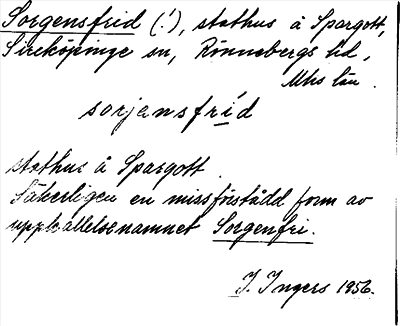 Sorgensfrid (!), stathus å Spargott,
Sireköpinge sn, Rönnebergs hd,
Mhs län.
sarjansfrid
stathus å Spargott.
Säkerligen en missförstådd form av
uppkallelsenamnet Sorgenfri.
I. Ingers 1956.